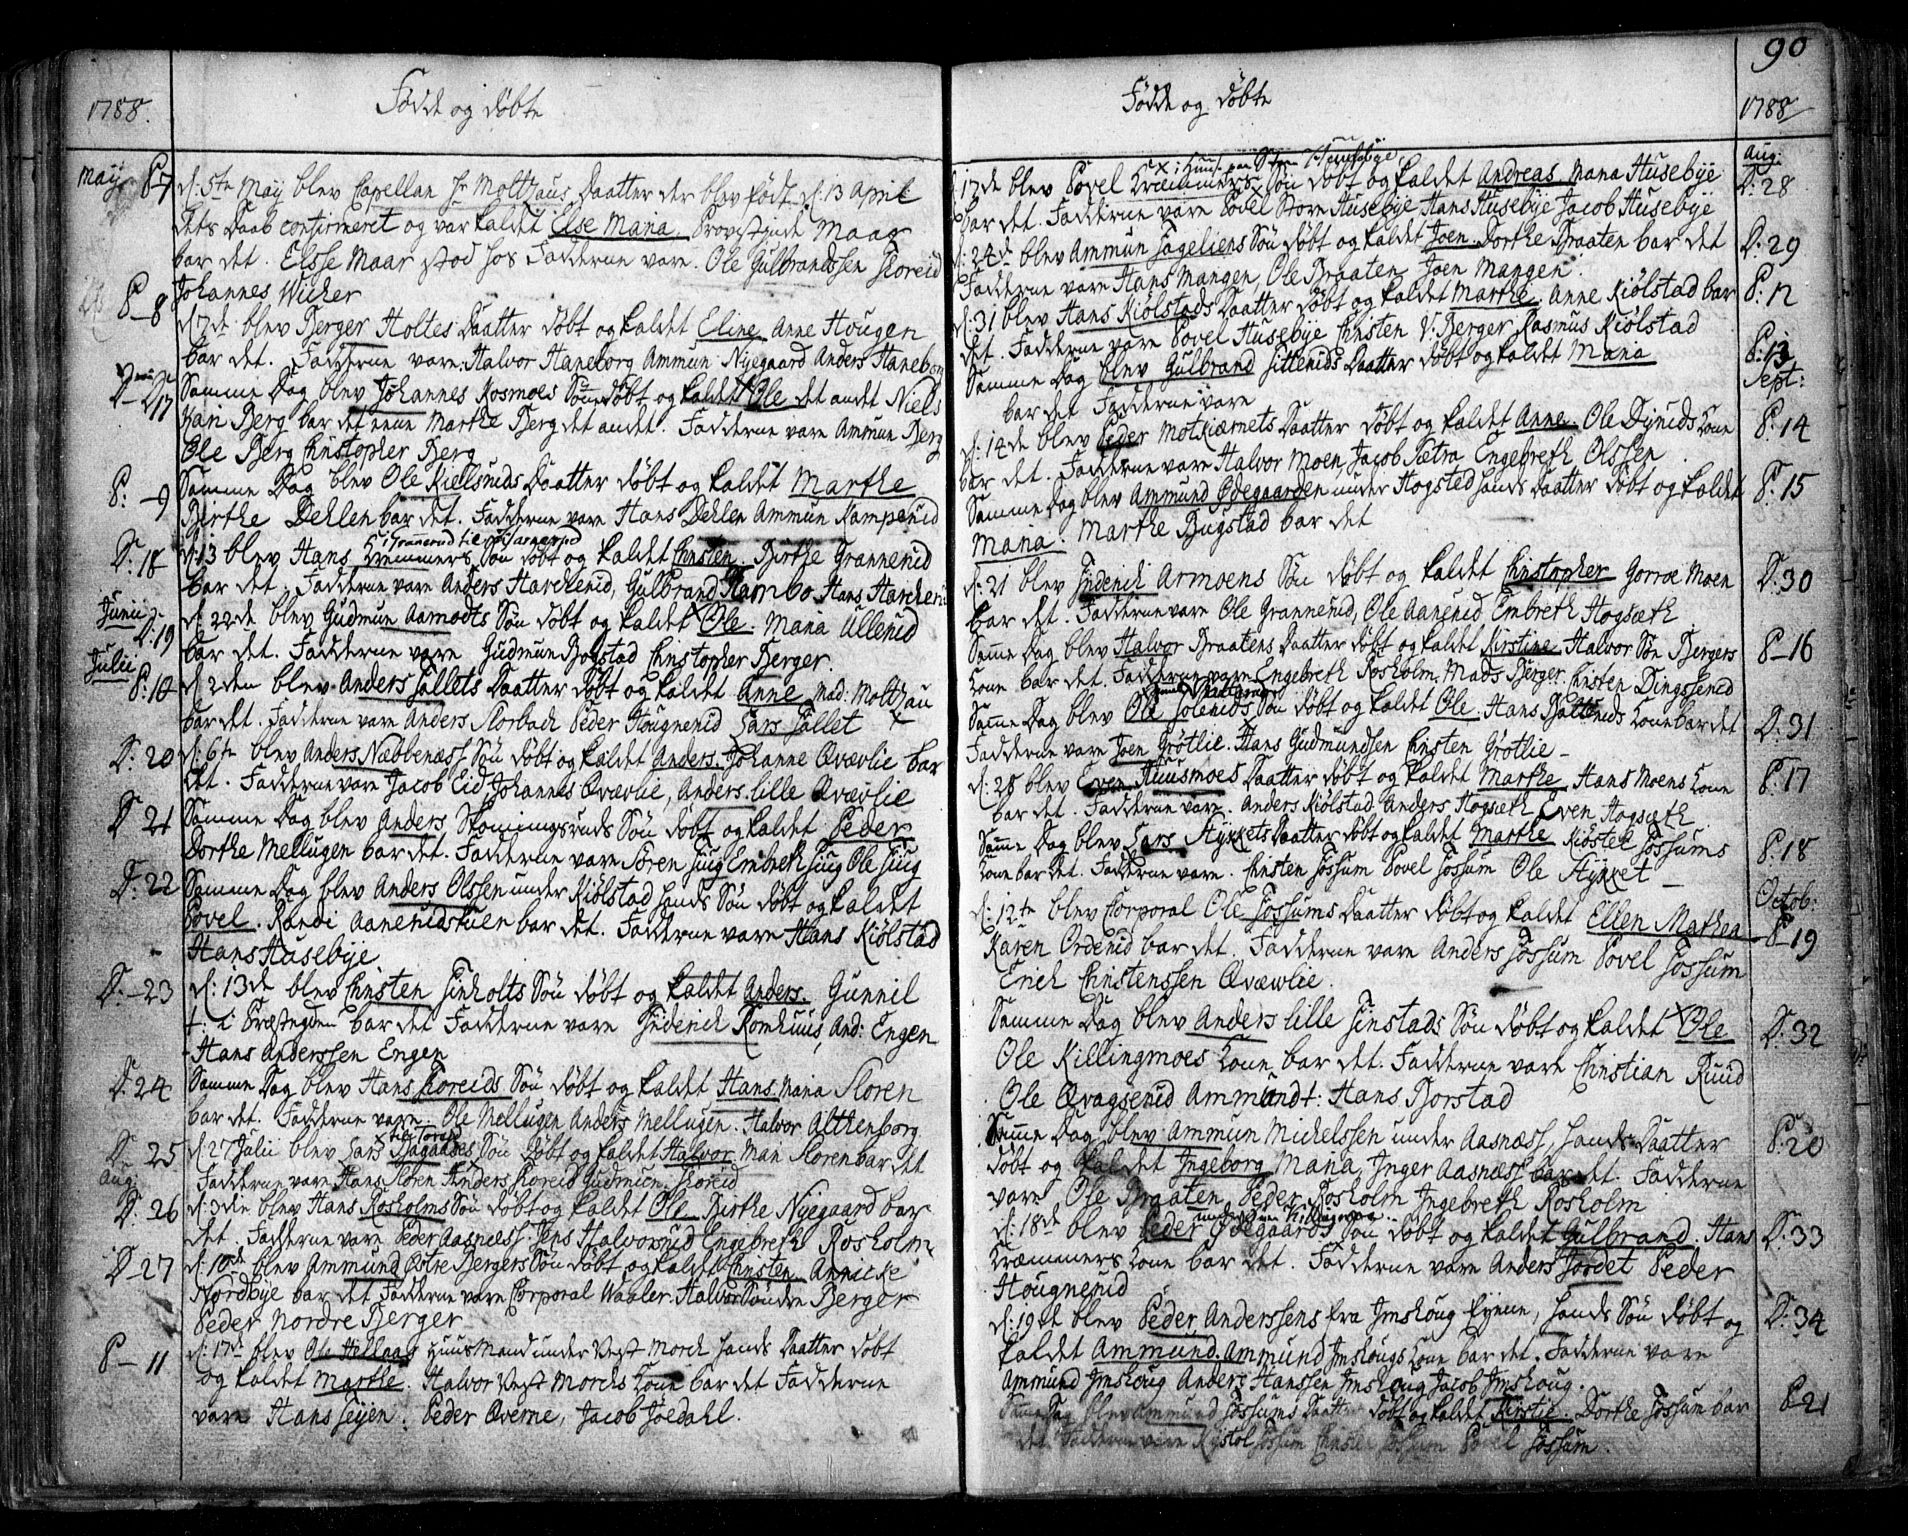 1788.
Födde og döbte
May P-7 d. 5te May blev Capellan Hr Molthaus Daatter der blev födt d. 13 April
dets Daab confirmeret og var kaldet Else Maria. Provstinde Maag
bar det. Elsse Maar stod hos Fadderne vare. Ole Gulbrandssen Floreid
Johannes Wicker
P-8 d. 7de blev Berger Holtes Daatter döbt og kaldet Eline Anne Hougen
bar det. Fadderne vare: Halvor Haneborg Ammun Nyegaard Anders Haneborg
D-17 Samme Dag blev Johannes Kosmoes Sön döbt og kaldet Ole det andet Niels
Kari Berg bar det eene Marthe Berg det andet. Fadderne vare Ammun Berg
Ole Berg Christopher Berg
P:-9 Samme Dag blev Ole Kielsruds Daatter döbt og kaldet Marthe
Birthe Dehlen bar det. Fadderne vare Hans Dehlen Ammun Kamperud
D:18 d:13 blev Hans Kremmers Sön döbt og kaldet Christen. Birthe Grannerud
bar det. Fadderne vare Anders Harcherud, Gulbrand Kambo Hans Harcherud
Junii D:19 d. 22de blev Gudmun Aamodts Sön döbt og kaldet Ole. Maria Ullerud
bar det. Fadderne vare Gudmun Bogstad Christopher Berger.
Julii P:10 d. 2den blev Anders Sollets Daatter döbt og kaldet Anne Mad: Molthau
bar det. Fadderne vare Anders Florbach Peder Hougnerud Lars Sollet
D: 20 d: 6te blev Anders Næbbenæss Sön döbt og kaldet Anders. Johanne Qvævlie bar
det. Fadderne vare Jacob Eid Johannes Qvævlie, Anders lille Qvævlie
D 21 Samme Dag blev Anders Skomingsruds Sön döbt og kaldet Peder
Dorthe Mellugen bar det. Fadderne vare Sören Juig Embreth Juig Ole Juig
D: 22 Samme Dag blev Anders Olssen under Kiölstad hands Sön döbt og kaldet
Povel. Randi Aanerudstuen bar det. Fadderne vare Hans Kiölstad
Hans Husebye
D:-23 d: 13de blev Christen Sinholts Sön döbt og kaldet Anders. Gunnil
t. i Præstegden bar det Fadderne vare Friderich Komhuus, And: Engen
Hans Anderssen Engen
D: 24 Samme Dag blev Hans Floreids Sön döbt og kaldet Hans. Maria Floren
bar det. Fadderne vare Ole Mellugen Anders Mellugen. Halvor Althenborg
D: 25 d: 27 Julii blev Lars Dagaases Sön döbt og kaldet Halvor Mari Floren bar det
Fadderne vare Hans Floren Anders Floreid Gudmun Floreid
Aug: D: 26 d: 3die blev Hans Rosholms Sön döbt og kaldet Ole. Birthe Nyegaard bar
det. Fadderne vare Peder Aasnæss. Jens Halvorsrud Engebreth Rosholm
D-27 d: 10de blev Ammund Östre Bergers Sön döbt og kaldet Christen. Annicke
Nordbye bar det. Fadderne vare Corporal Waaler. Halvor Söndre Berger
Peder Nordre Berger
P-11 d. 17de blev Ole Hellaas Huusmand under Vest Morck hands Daatter döbt
og kaldet Marthe. Halvor Vest Morcks Kone bar det Fadderne
vare Hans Seyen. Peder Qverne, Jacob Joedahl.
90
Födde og döbte
1788
x i Huus paa Store Husebye
d. 17de blev Povel Kræmmers Sön döbt og kaldet Andreas. Maria Husebye Aug: D: 28
bar det. Fadderne vare Povel Store Husebye Hans Husebye Jacob Husebye
d: 24de blev Ammun Sageliens Sön döbt og kaldet Joen. Dorthe Braaten bar det D: 29
Fadderne vare Hans Mangen, Ole Braaten Joen Mangen.
d: 31 blev Hans Kiölstads Daatter döbt og kaldet Marthe. Anne Kiölstad bar P: 12
det. Fadderne vare Povel Husebye Christen V. Berger Rasmus Kiölstad
Samme Dag blev Gulbrand Sitteruds Daatter döbt og kaldet Maria P:13
bar det Fadderne vare Sept:
d: 14de blev Peder Motkiærnets Daatter döbt og kaldet Anne. Ole Dyruds Kone P: 14
bar det. Fadderne vare Halvor Moen, Jacob Sætra Engebreth Olssen
Samme Dag blev Ammund Ödegaarden under Hogsted hands Daatter döbt og kaldet P: 15
Maria. Marthe Bugstad bar det
d: 21 blev Friderich Armoens Sön döbt og kaldet Christopher Gorroe Moen D: 30
bar det. Fadderne vare Ole Grannerud, Ole Aanerud Embreth Hogsæth
Samme Dag blev Halvor Braatens Daatter döbt og kaldet Kirstine. Halvor Sön Bergers P-16
Kone bar det. Fadderne vare Engebreth Rosholm. Mads Berger. Christen Dingsrud
Samme Dag blev Ole Soleruds Sön döbt og kaldet Ole. Hans Botteruds Kone bar det D: 31
Fadderne vare Joen Grötlie. Hans Gudmundsen Christen Grötlie
d: 28 blev Even Huusmoes Daatter döbt og kaldet Marthe. Hans Moens Kone P: 17
bar det. Fadderne vare. Anders Kiölstad Anders Hogsæth Even Hogsæth
Samme Dag blev Lars Stykkets Daatter döbt og kaldet Marthe Kiöstel Fossums P: 18
Kone bar det. Fadderne vare. Christen Fossum Povel Fossum Ole Stykket
d: 12te blev Corporal Ole Fossums Daatter döbt og kaldet Ellen Mathea Octob: P-19
Karen Orderud bar det. Fadderne vare Anders Fossum Povel Fossum
Erich Christenssen Qvævlie.
Samme Dag blev Anders lille Finstads Sön döbt og kaldet Ole D: 32
Ole Killingmoes Kone bar det. Fadderne vare Christian Ruud
Ole Qvagserud Ammund t: Hans Bjorstad
Samme Dag blev Ammun Mickelssen under Aasnæss, hands Daatter P: 20
döbt og kaldet Ingeborg Maria, Inger Aasnæss bar det. Fadderne
vare Ole Braaten, Peder Rosholm Ingebreth Rosholm
d: 18de blev Peder Ödegaards Sön döbt og kaldet Gulbrand. Hans D: 33
Kræmmers Kone bar det. Fadderne vare Anders Jordet Peder
Hougnerud
d: 19de blev Peder Anderssens fra Jmshoug Eyene, hands Sön döbt og D: 34
kaldet Ammund. Ammund Jmshougs Kone bar det. Fadderne vare
Ammund Jmshoug Anders Hanssen Jmshoug Jacob Jmshoug.
Samme Dag blev Ammund Fossums Daatter döbt og kaldet Kirstie. Dorthe Fossum bar P21
det Fadderne vare Kystol Fossum Christen Fossum Povel Fossum.